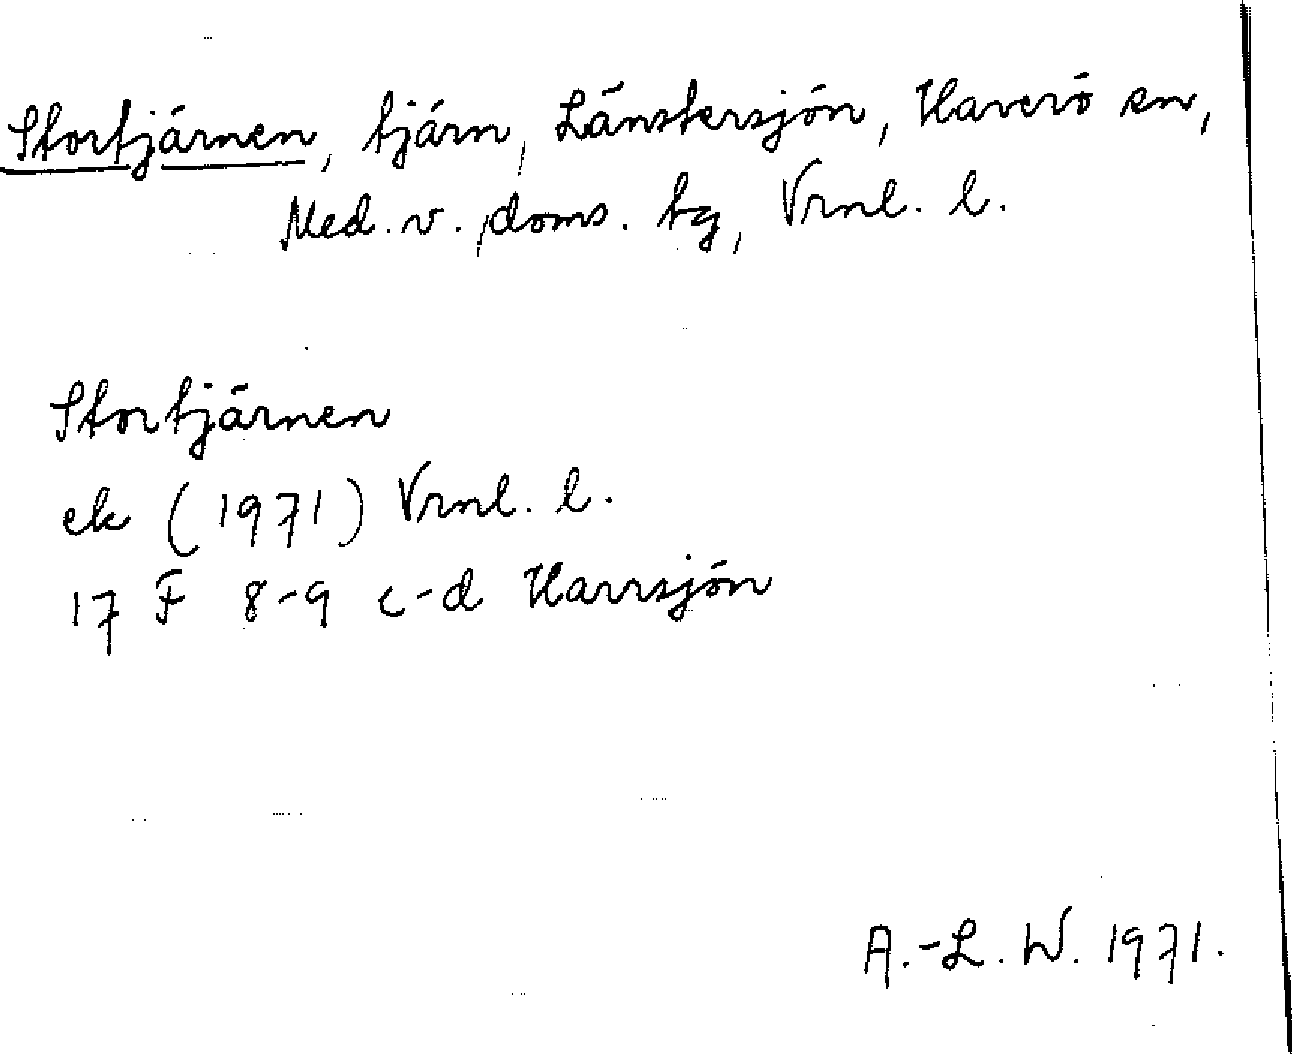 Stortjärnen, tjärn, Länstersjön, Haverö sn,
Med. v. doms. tg, Vrnl. l.
Stortjärnen
ek (1971) Vrnl. l.
17 F 8-9 c-d Harrsjön
A.-L. W. 1971.